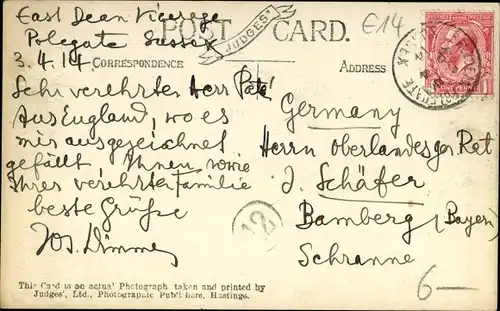 East Dean Vicarage
Polegate Sussex
3.4.14.
POST CARD.
JUDGES'
E14
CORRESPONDENCE
ADDRESS
ONE PENNY
Sehr verehrter Herr Pate
Aus England, wo es
mir ausgezeichnet
gefällt Ihnen sowie
Ihrer verehrten Familie
beste Grüße
Jos.
Germany
Herrn Oberlandesger. Rat
J. Schäfer
Bamberg (Bayern
Schranne
12
6—
This Card is an actual Photograph taken and printed by
Judges', Ltd., Photographic Publishers, Hastings.